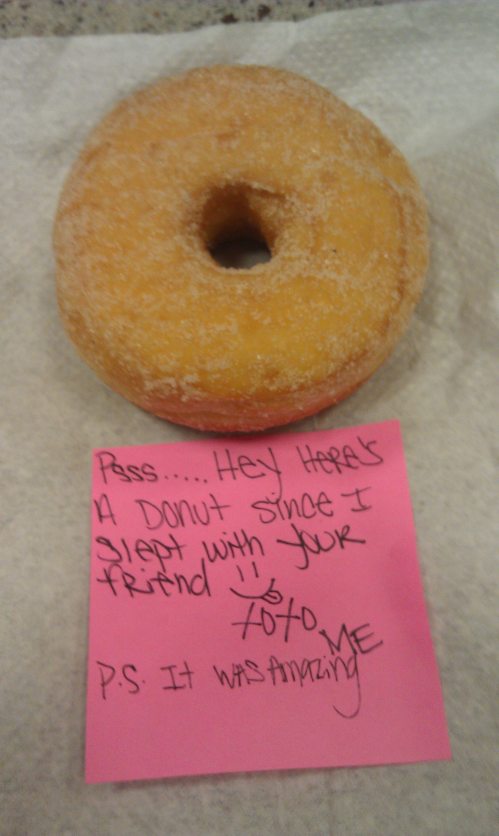 Psss..... Hey Here's
A Donut since I
slept with your
friend
xoxo
ME
P.S. It was Amazing